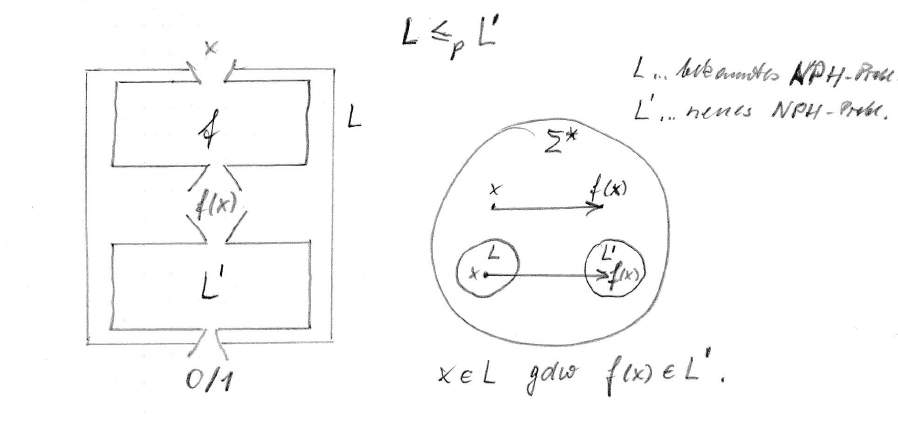 L ≤p L'
L... bekanntes NPH-Probl.
L'... neues NPH-Probl.
x
f
L
f(x)
L'
0/1
Σ*
x f(x)
L L'
x f(x)
x ∈ L gdw f(x) ∈ L'.